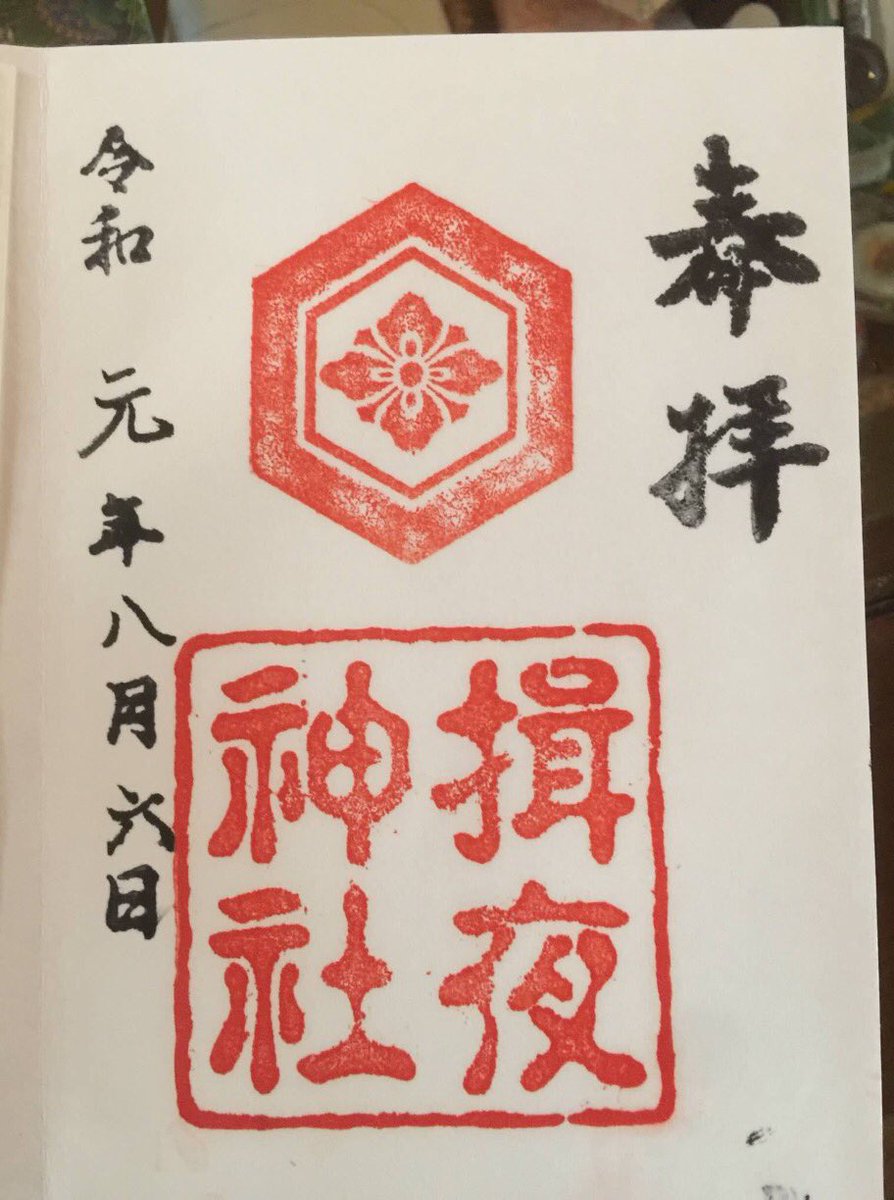 奉拝
揖夜
神社
令和 元年八月六日